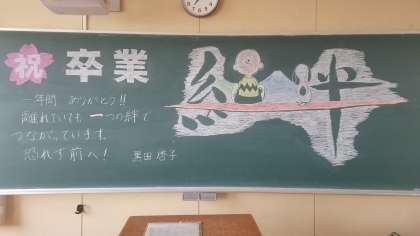 祝 卒業
一年間 ありがとう!!
離れていても、一つの絆で
つながっています。
恐れず前へ!
黒田 啓子
絆